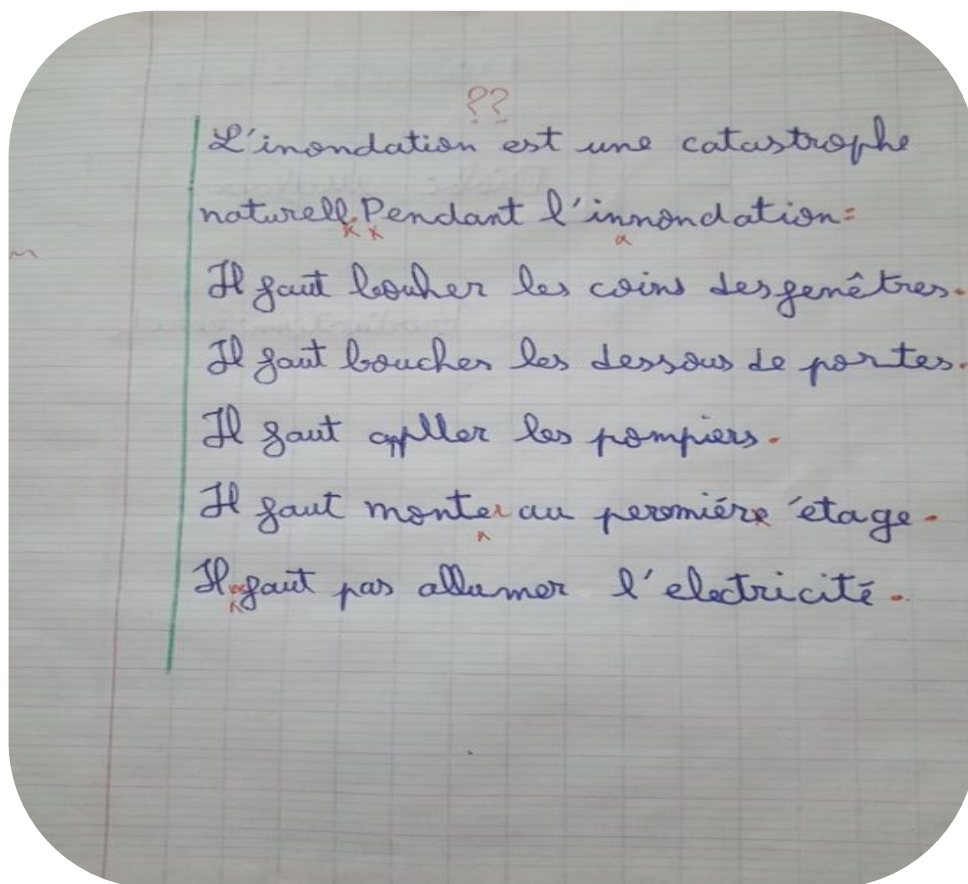 ??
L'inondation est une catastrophe
naturell. Pendant l'innondation:
Il faut bouher les coins des fenêtres.
Il faut boucher les dessous de portes.
Il faut appller les pompiers.
Il faut monter au peromiére étage.
Il faut pas allumer l'electricité.